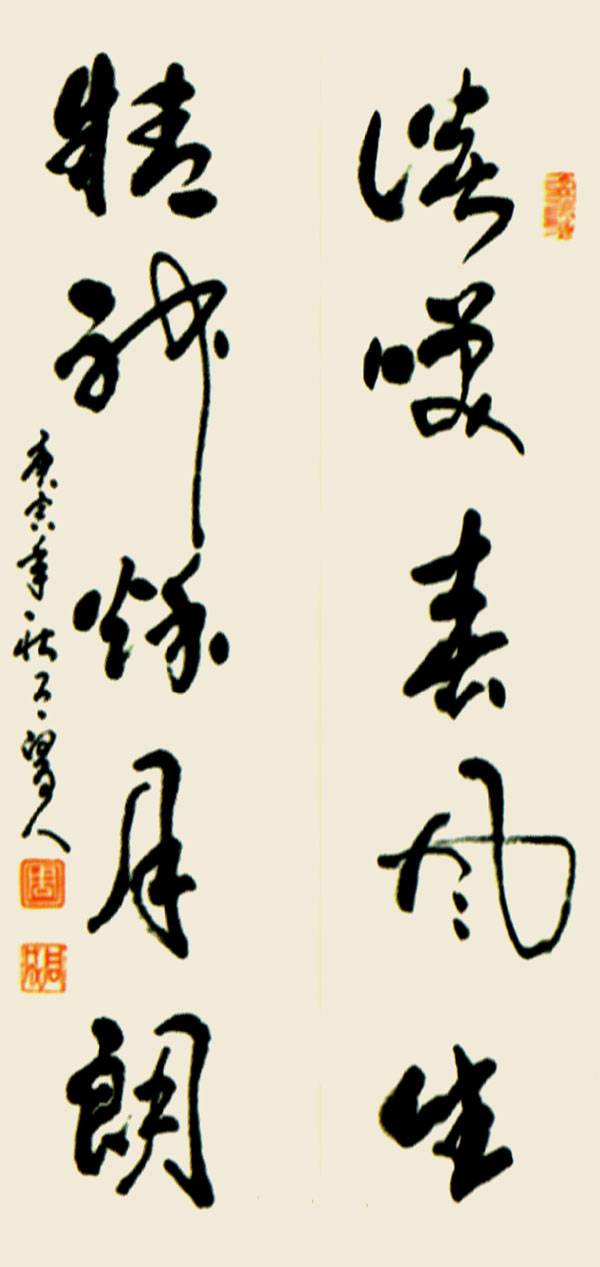 談咲春風生
精神秌月朗
庚寅年秋